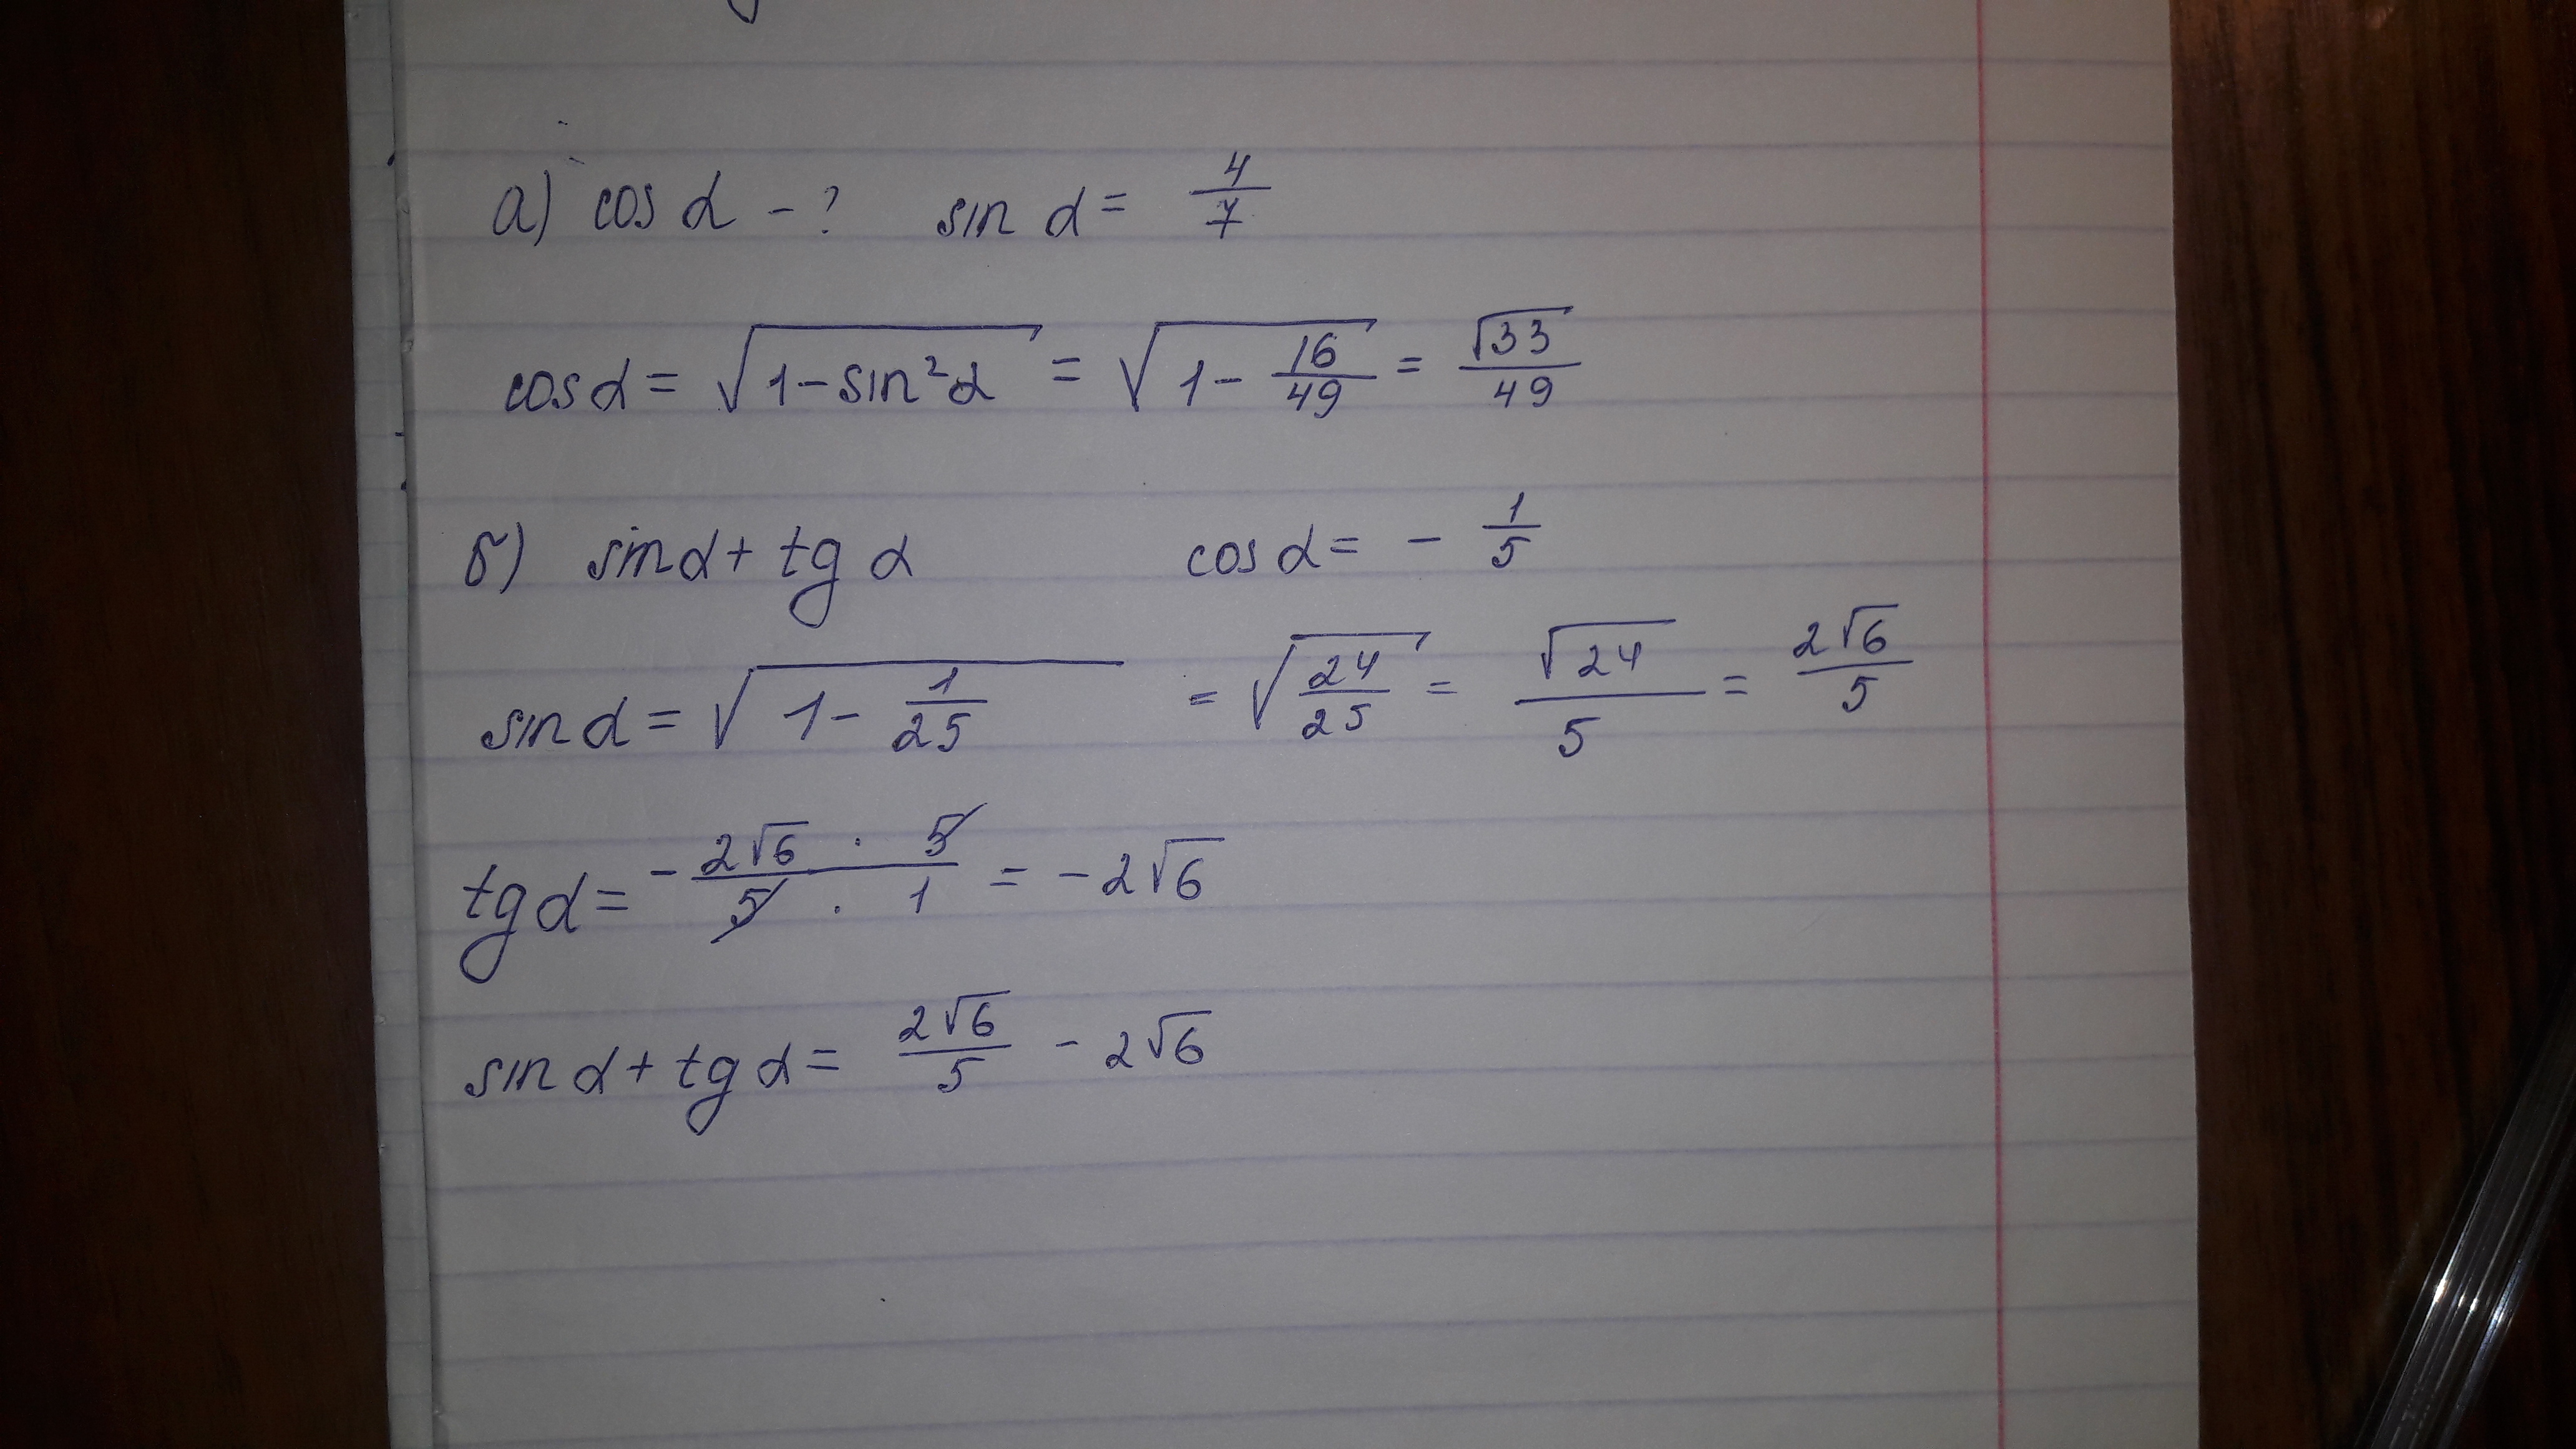 а) cos α - ? sin α = 4/7
cos α = √(1 - sin²α) = √(1 - 16/49) = √33/49
б) sin α + tg α cos α = - 1/5
sin α = √(1 - 1/25) = √(24/25) = √24/5 = 2√6/5
tg α = - (2√6 · 5)/(5 · 1) = - 2√6
sin α + tg α = 2√6/5 - 2√6